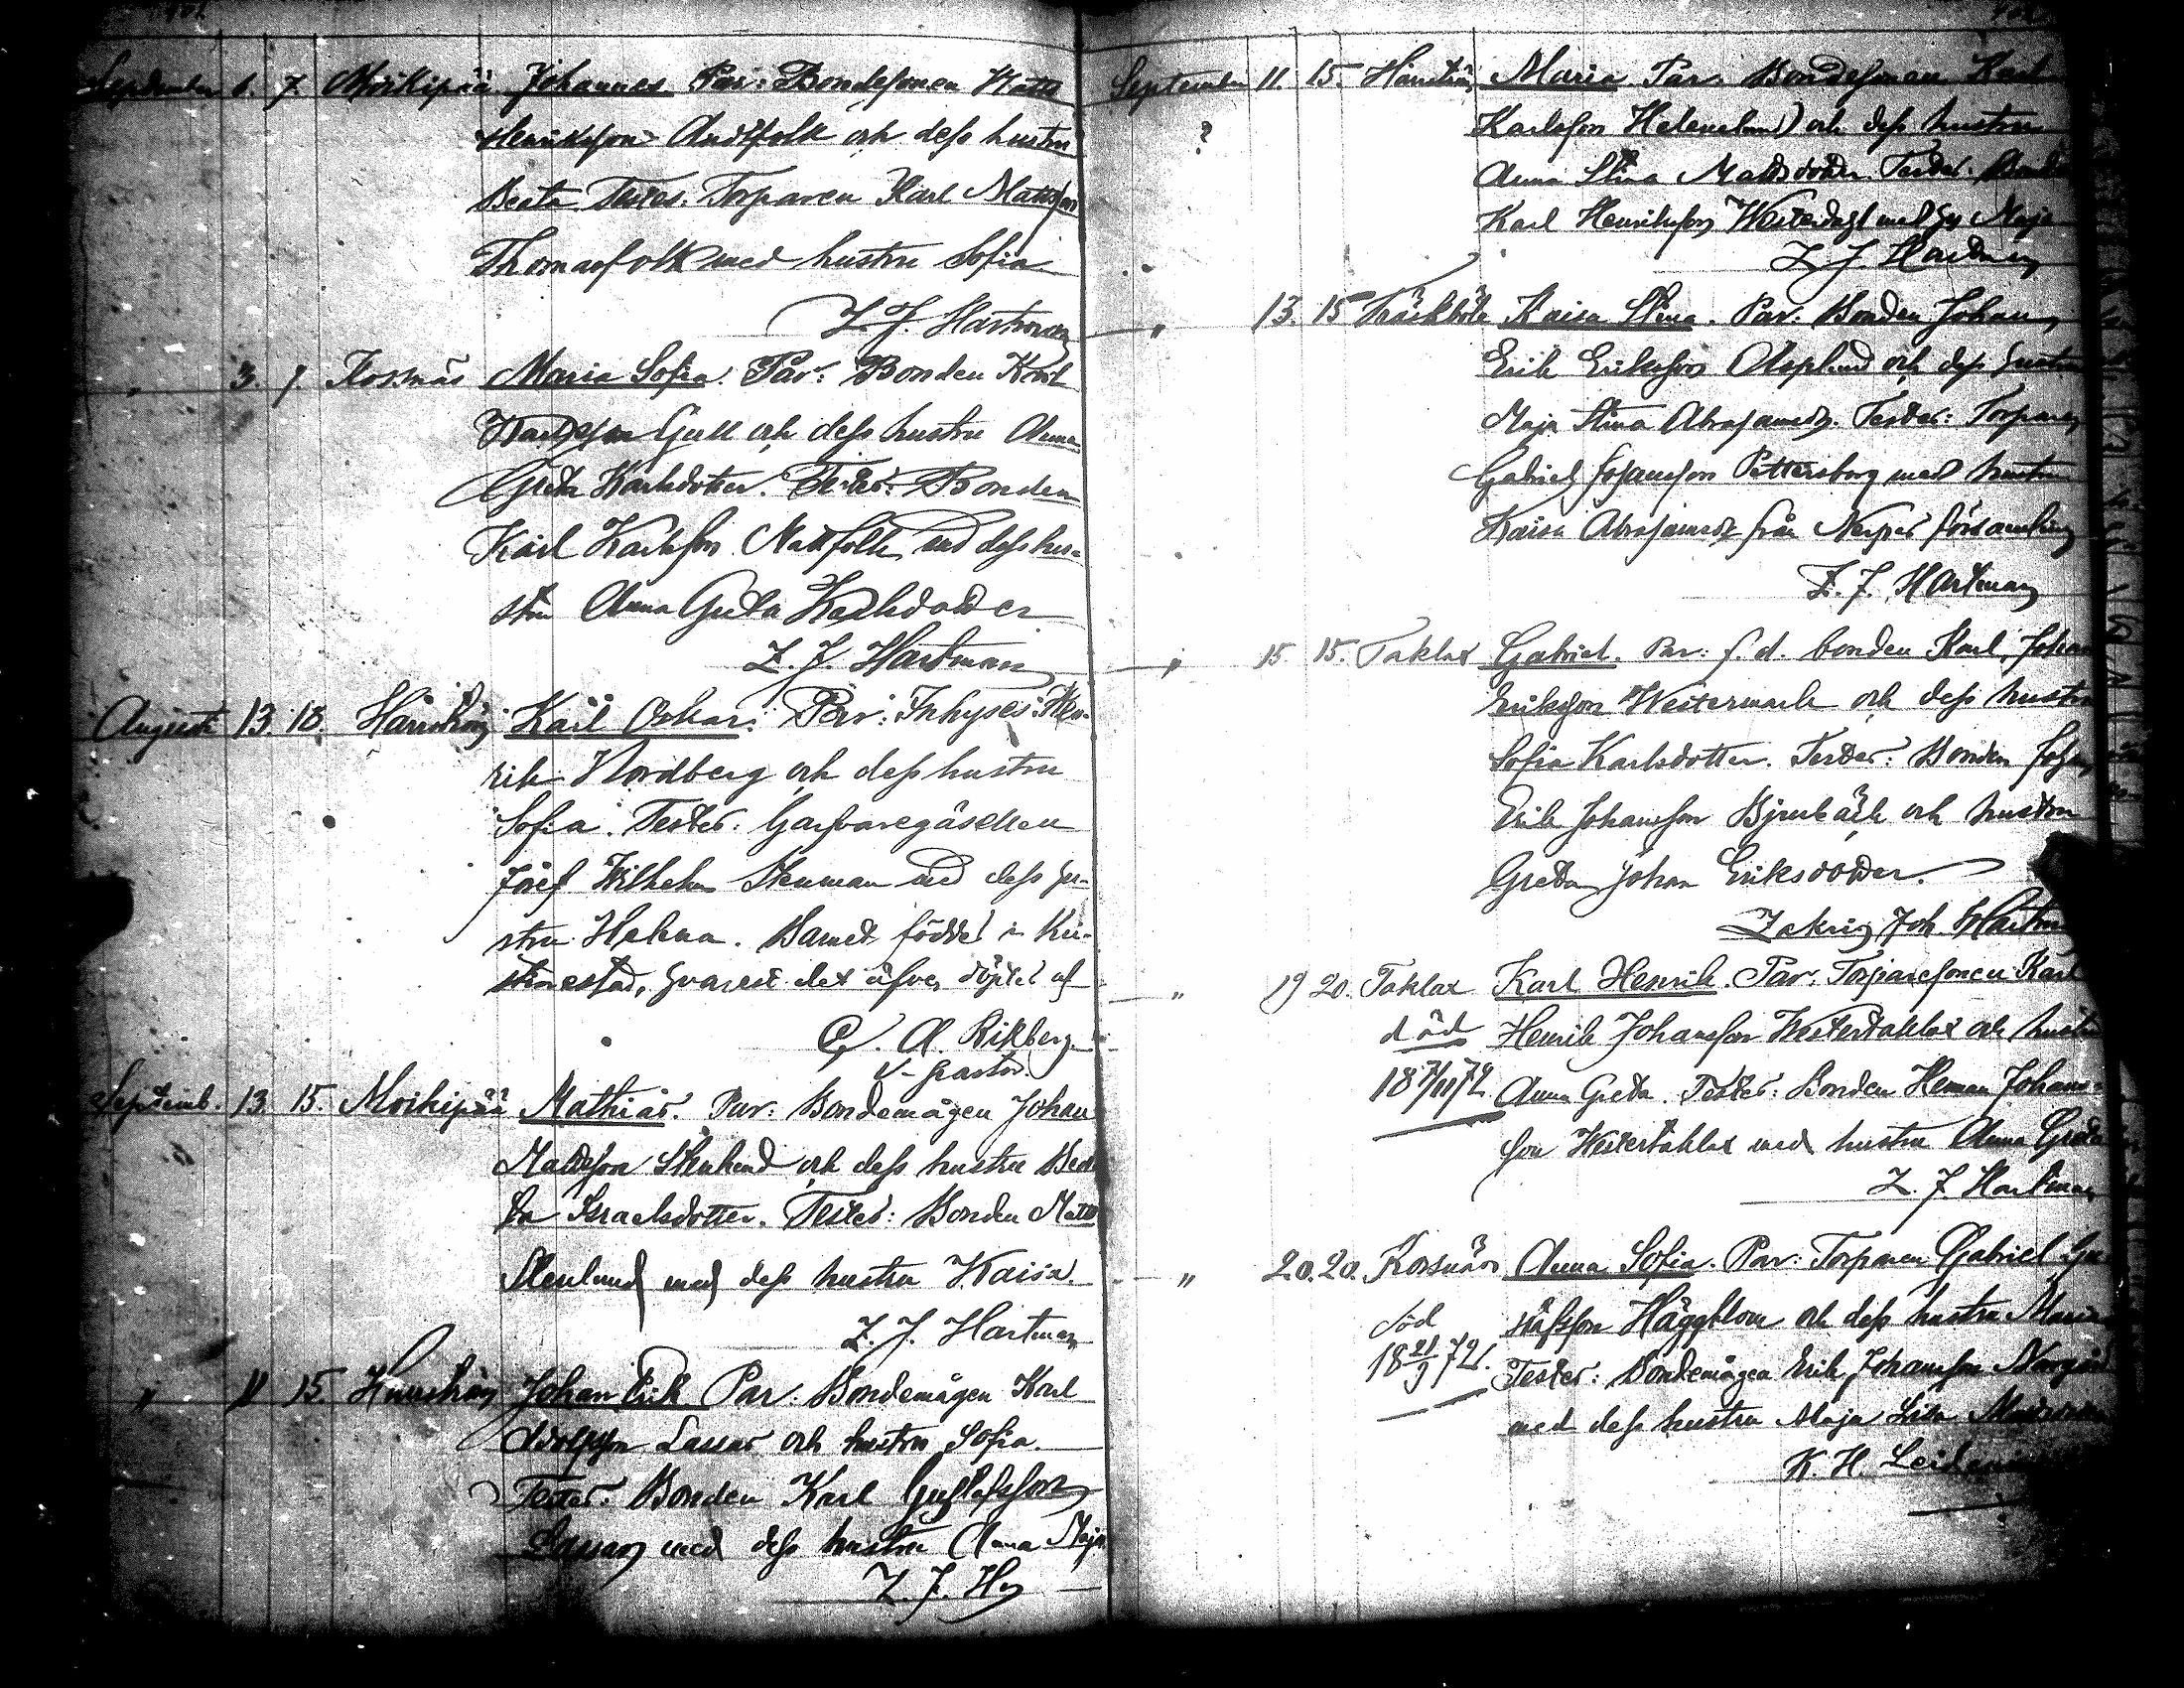 September 6. 7. Moikipää Johannes. Par: Bondesonen Matts
Henriksson Andtfolk och dess hustru
Beata. Testes: Torparen Karl Mattsson
Thomasfolk med hustru Sofia
Z. J. Hartman
" 3. 7. Korsnäs Maria Sofia. Par: Bonden Karl
Karlsson Gull och dess hustru Anna
Greta Karlsdotter. Testes: Bonden
Karl Karlsson Nattfolk med dess hu-
stru Anna Greta Karlsdotter
Z. J. Hartman
Augusti 13. 18. Harrström Karl Oskar. Par: Inhyses: Hen-
rik Nordberg och dess hustru
Sofia. Testes: Garfvaregesällen
Josef Wilhelm Stenman med dess hu-
stru Helena. Barnet föddes i Kri-
stinestad, hvarest det äfven döptes af
A. Rikberg
v-Pastor.
Septemb. 13. 15. Moikipää Mathias. Par: Bondemågen Johan
Mattsson Stenlund och dess hustru Bea-
ta Israelsdotter. Testes: Bonden Matts
Stenlund med dess hustru Kaisa.
Z. J. Hartman
" 11 15. Harrström Johan Erik Par: Bondemågen Karl
Adolfsson Lassas och hustru Sofia.
Testes: Bonden Karl Gustafsson
Lassas med dess hustru Anna Maja
Z. J. Hn
September 11. 15. Harrström Maria. Par: Bondesonen Karl
? Karlsson Helenelund och dess hustru
Anna Stina Mattsdotter. Testes:
Karl Henriksson med Maja
Z. J. Hartman
" 13. 15 Träskböle Kaisa Stina. Par: Bonden Johan
Erik Eriksson Asplund och dess hustru
Maja Stina Abrahamsdr. Testes: Torparen
Gabriel Johansson Pettersborg med hustru
Kaisa Abrahamsdr från Nerpes församling
Z. J. Hartman
" 15. 15. Taklax Gabriel. Par: f. d. bonden Karl Johan
Eriksson Westermark och dess hustru
Sofia Karlsdotter. Testes: Bonden Johan
Erik Johansson Bjurbäck och hustru
Greta Johan Eriksdotter.
Zakris Joh. Hartman
" 19 20. Taklax Karl Henrik. Par: Torparesonen Karl
död Henrik Johansson Westertaklax och hustru
18 7/11 74. Anna Greta. Testes: Bonden Herman Johans-
son Westertaklax med hustru Anna Greta
Z. J. Hartman
" 20. 20. Korsnäs Anna Sofia. Par: Torparen Gabriel Gu-
död stafsson Häggblom och dess hustru Maria
18 21/9 74. Testes: Bondemågen Erik Johansson Norrgård
med dess hustru Maja Lisa
K. H.